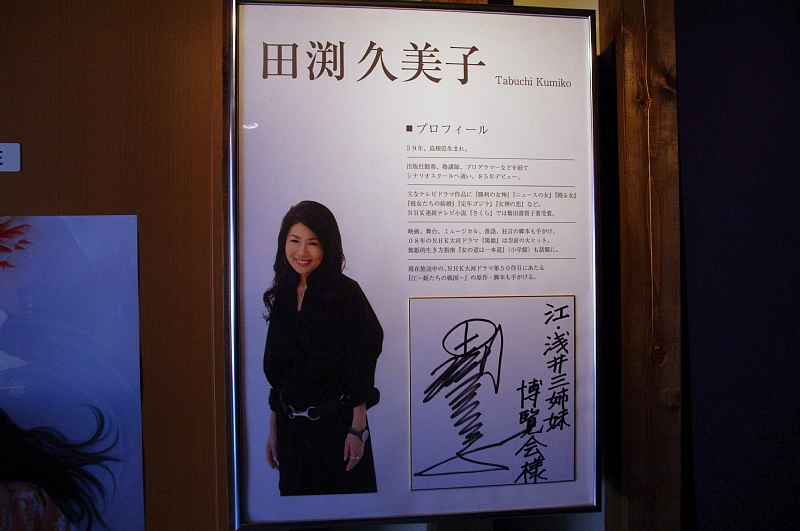 田渕 久美子
Tabuchi Kumiko
■プロフィール
59年、島根県生まれ。
出版社勤務、塾講師、プログラマーなどを経て
シナリオスクールへ通い、85年デビュー。
主なテレビドラマ作品に『勝利の女神』『ニュースの女』『殴る女』
『彼女たちの結婚』『定年ゴジラ』『女神の恋』など。
NHK連続テレビ小説『さくら』では橋田壽賀子賞受賞。
映画、舞台、ミュージカル、落語、狂言の脚本も手がけ、
08年のNHK大河ドラマ『篤姫』は空前の大ヒット。
篤姫的生き方指南『女の道は一本道』(小学館)も話題に。
現在放送中の、NHK大河ドラマ第50作目にあたる
『江〜姫たちの戦国〜』の原作・脚本も手がける。
江・浅井三姉妹
博覧会様